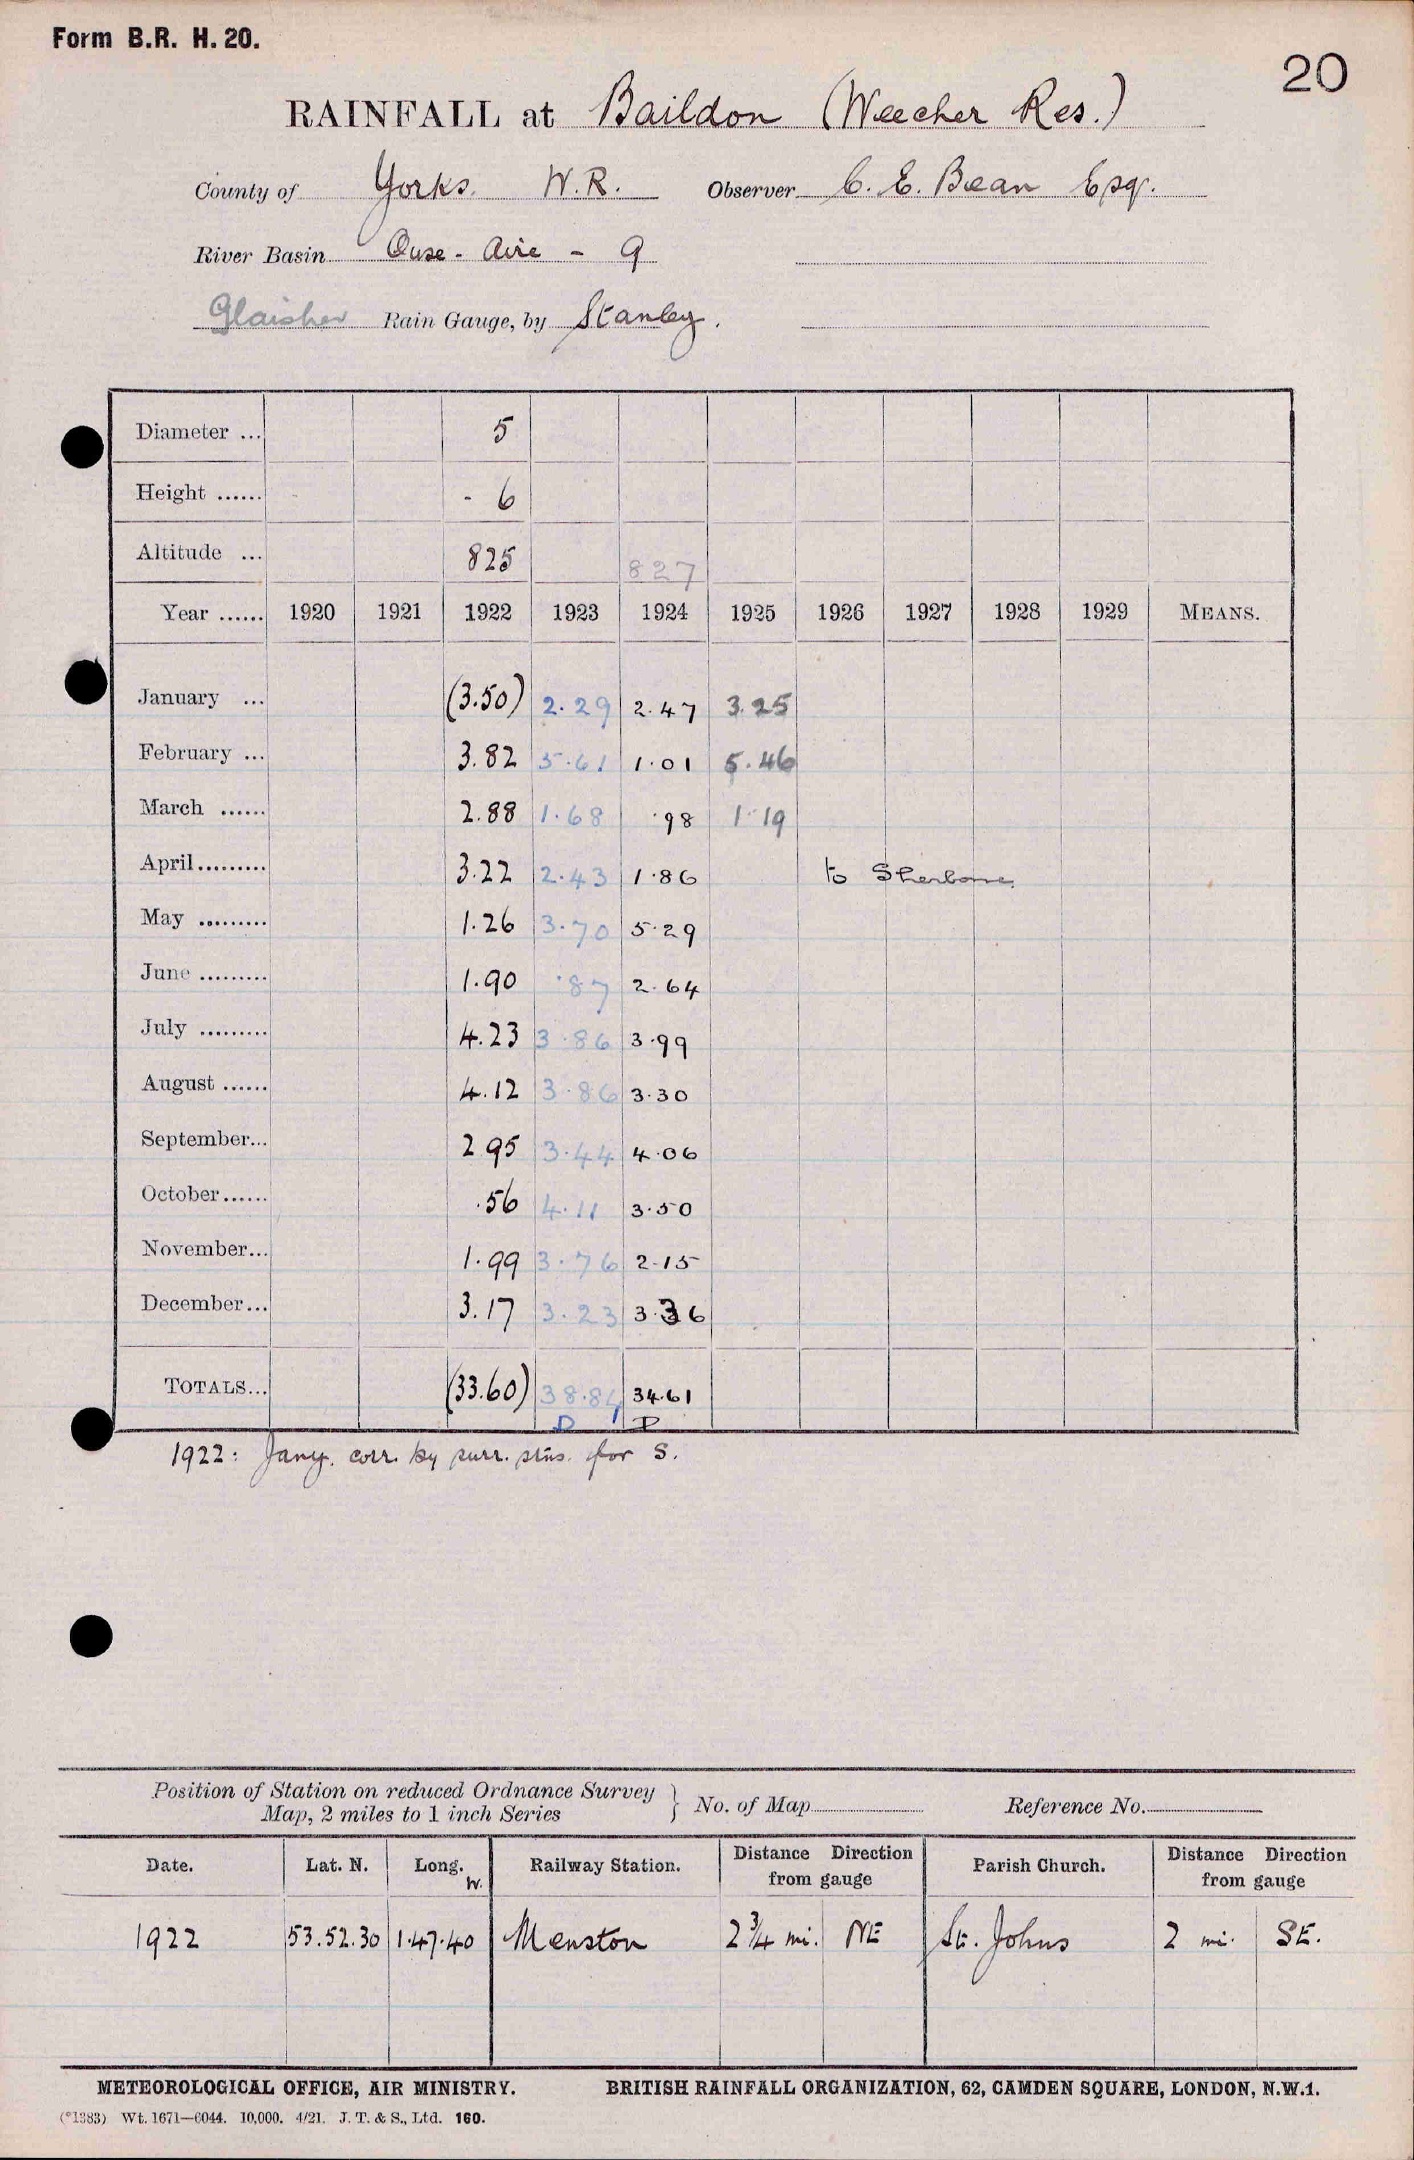 Form B.R. H. 20.
20
RAINFALL at Baildon (Weecher Res.)
County of Yorks. W.R. Observer C. E. Bean Esq.
River Basin Ouse - Aire - 9
Glaisher Rain Gauge, by Stanley.
Diameter ... 5
Height ...... - 6
Altitude ... 825 827
Year ...... 1920 1921 1922 1923 1924 1925 1926 1927 1928 1929 MEANS.
January ... (3.50) 2.29 2.47 3.25
February ... 3.82 5.61 1.01 5.46
March ...... 2.88 1.68 .98 1.19
April......... 3.22 2.43 1.86 to Sherborne
May ......... 1.26 3.70 5.29
June ......... 1.90 .87 2.64
July ......... 4.23 3.86 3.99
August ...... 4.12 3.86 3.30
September... 2 95 3.44 4.06
October...... .56 4.11 3.50
November... 1.99 3.76 2.15
December... 3.17 3.23 3.36
TOTALS... (33.60) 38.84 34.61
D D
1922: Jany. corr. by surr. stns. for S.
Position of Station on reduced Ordnance Survey
Map, 2 miles to 1 inch Series } No. of Map Reference No.
Date. Lat. N. Long. W. Railway Station. Distance Direction from gauge Parish Church. Distance Direction from gauge
1922 53.52.30 1.47.40 Menston 2 3/4 mi. NE St. Johns 2 mi. SE.
METEOROLOGICAL OFFICE, AIR MINISTRY. BRITISH RAINFALL ORGANIZATION, 62, CAMDEN SQUARE, LONDON, N.W.1.
(*1383) Wt. 1671—6044. 10,000. 4/21. J. T. & S., Ltd. 160.